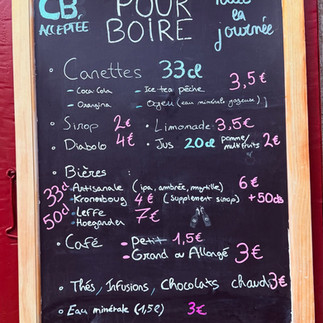 CB POUR toute la
ACCEPTÉE BOIRE journée
• Canettes 33cl
- Coca Cola - Ice tea pêche 3,5€
- Orangina - Ogeu (eau minérale gazeuse)
• Sirop 2€ • Limonade 3,5€
• Diabolo 4€ • Jus 20cl pomme/multifruits 2€
• Bières :
33cl - Artisanale (ipa, ambrée, myrtille) 6€
- Kronenbourg 4€ (Supplément sirop) +50cts
50cl - Leffe 7€
- Hoegarden
• Café - Petit 1,5€
- Grand ou Allongé 3€
• Thés, Infusions, Chocolats chaud 3€
• Eau minérale (1,5l) 3€